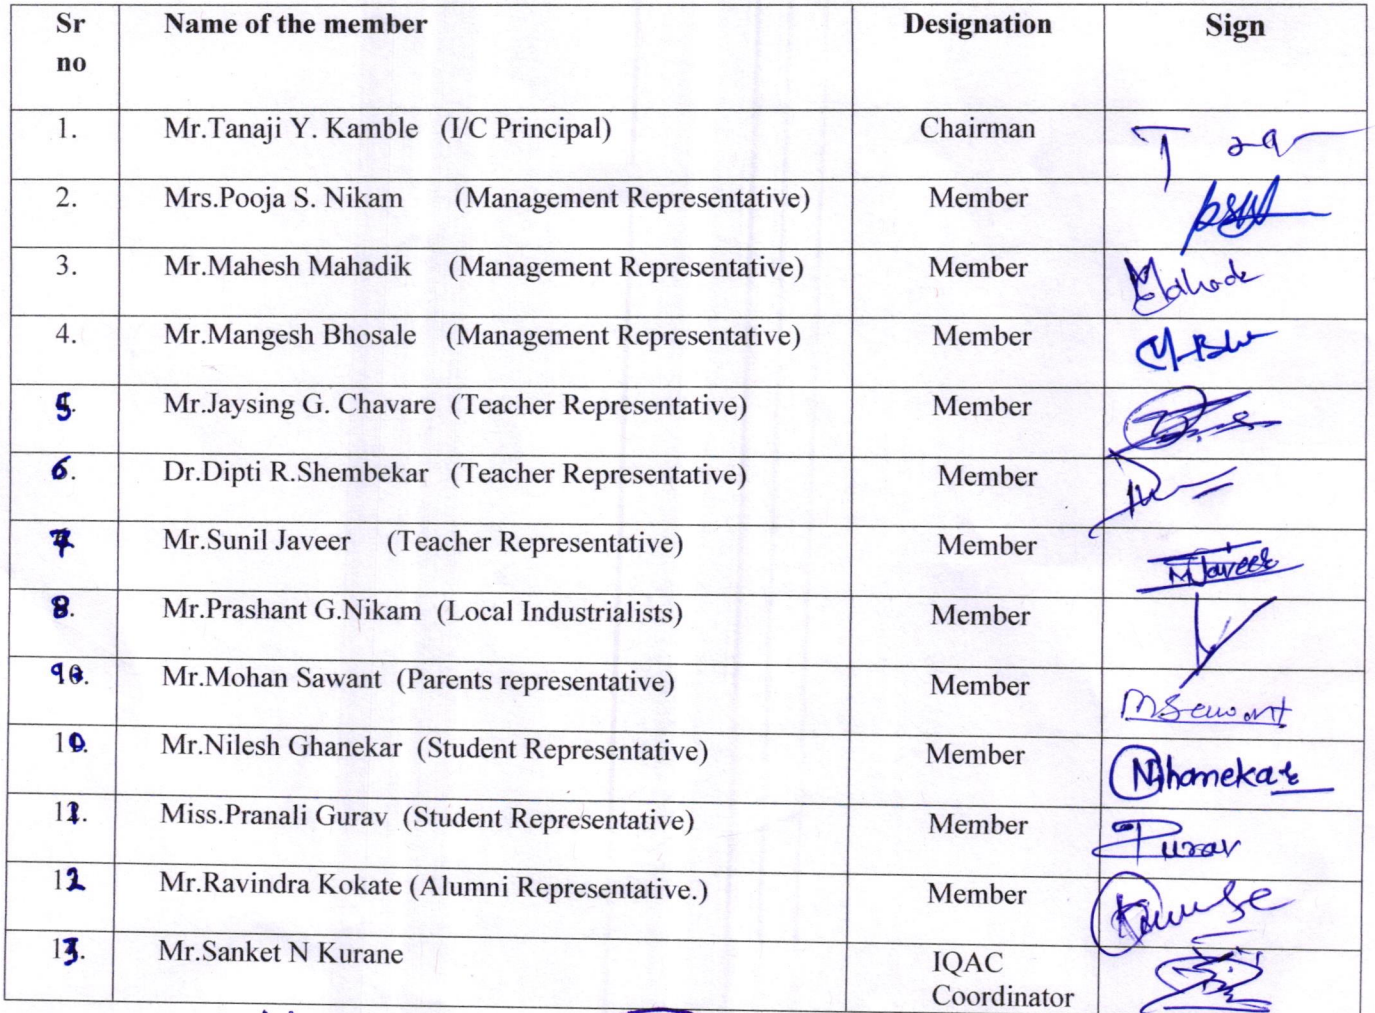 Sr no Name of the member Designation Sign
1. Mr.Tanaji Y. Kamble (I/C Principal) Chairman
2. Mrs.Pooja S. Nikam (Management Representative) Member
3. Mr.Mahesh Mahadik (Management Representative) Member
4. Mr.Mangesh Bhosale (Management Representative) Member
5. Mr.Jaysing G. Chavare (Teacher Representative) Member
6. Dr.Dipti R.Shembekar (Teacher Representative) Member
7 Mr.Sunil Javeer (Teacher Representative) Member
8. Mr.Prashant G.Nikam (Local Industrialists) Member
9. Mr.Mohan Sawant (Parents representative) Member
10. Mr.Nilesh Ghanekar (Student Representative) Member
11. Miss.Pranali Gurav (Student Representative) Member
12 Mr.Ravindra Kokate (Alumni Representative.) Member
13. Mr.Sanket N Kurane IQAC Coordinator